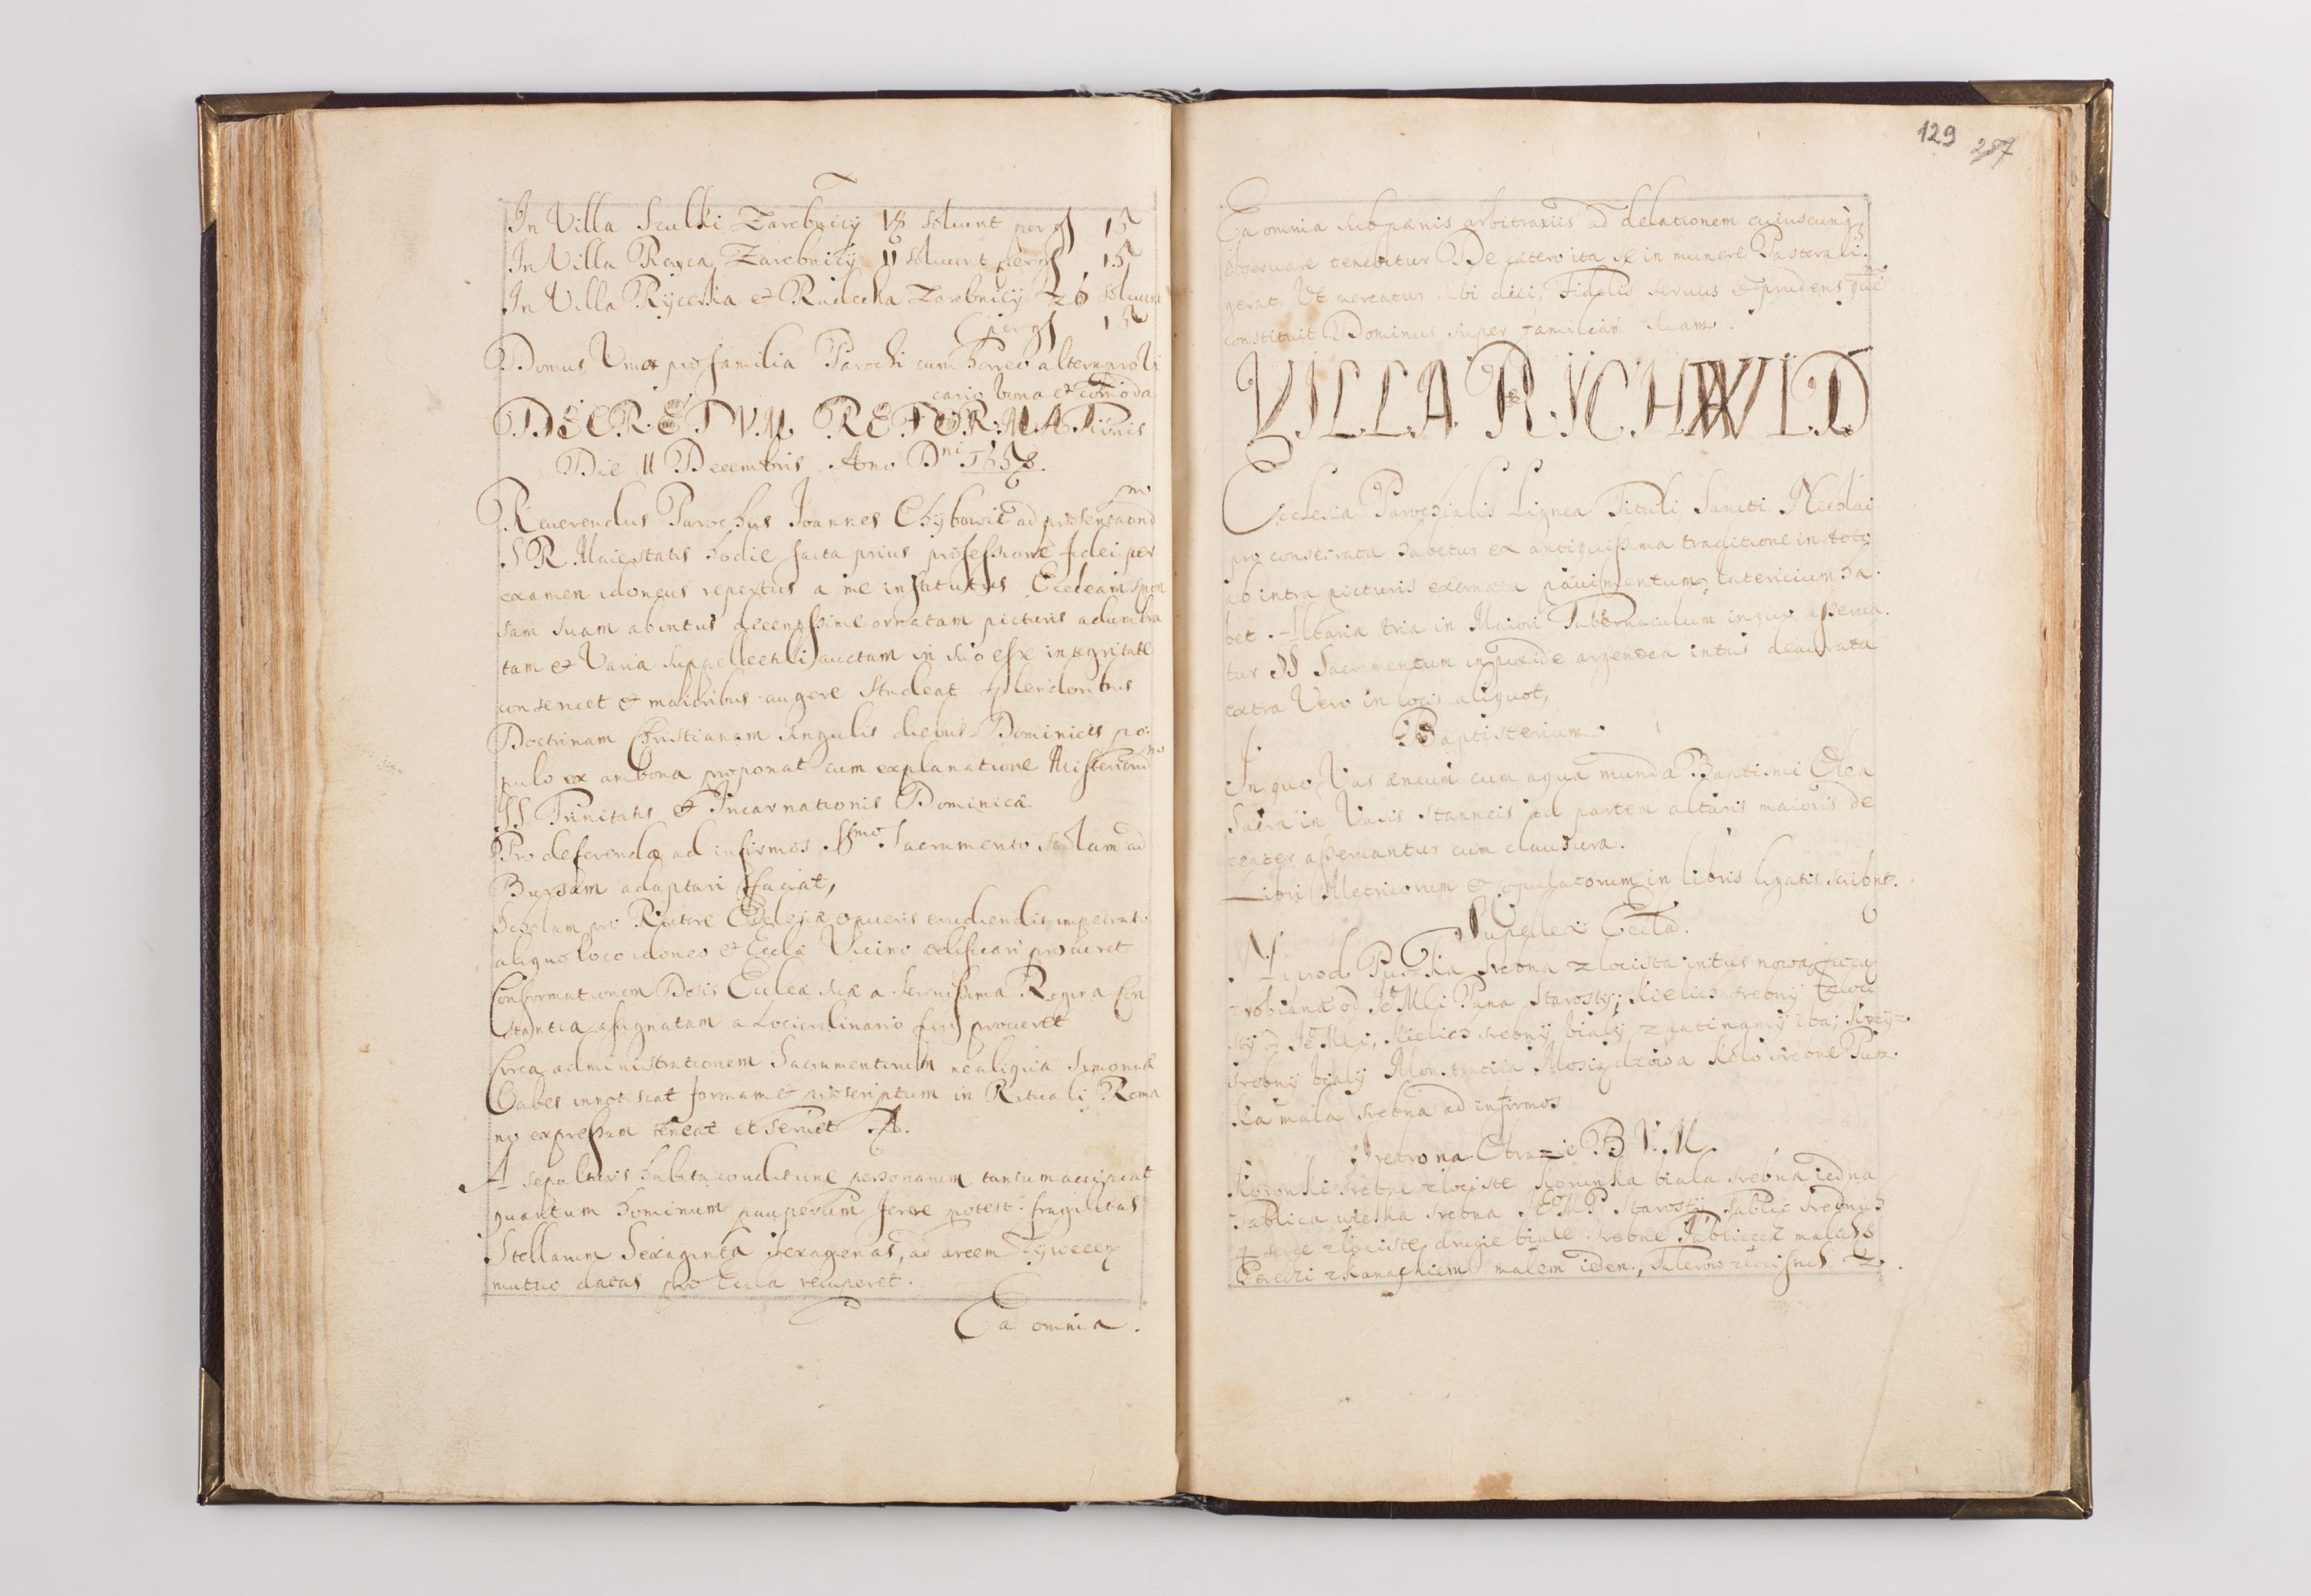 In Villa Sculki Zarebnicy solvunt per gs 15
In Villa Rayca Zarebnicy 11 solvunt per gs 15
In Villa Rycerka et Radecka Zarebnicy 26 solvunt
per gs 15
Domus Una pro familia Parochi cum horreo altera pro Vi
cario bona et comoda
DECRETVM REFORMATionis
Die 11 Decembris Ano Dni 1658.
Reverendus Parochus Joannes Chybowic ad
S R Maiestatis hodie facta prius professione fidei per
examen idoneus repertus a me institutus Eccleam spon
sam suam ab intus decentissime ornatam picturis adumbra
tam et Varia supellectili auctam in suo esse integritate
conservet et maioribus augere studeat splendoribus
Doctrinam Christianam singulis diebus Dominicis po
pulo ex ambona proponat cum explanatione Misteriorum
SS Trinitatis et Incarnationis Dominicæ
Pro deferendo ad infirmos SSmo Sacramento Stolam ad
Bursam adaptari faciat,
Scholam pro Rectore Ecclesiæ pueris erudiendis
aliquo loco idoneo et Eccla Vicino ædificari procuret
Confirmationem Dotis Eccleæ suæ a Serenissima Regina Con
stantia assignatam a Loci ordinario fieri procuret
Circa administrationem Sacramentorum ne aliqua Simoniæ
labes innotescat formam et præscriptum in Rituali Roma
no expressum teneat et servet
A sepulturis habita conditione personarum tantum accipiat
quantum hominum pauperum ferre potest fragilitas
Stellarum Sexaginta sexagenas, ad arcem Zywecen
mutuo datas pro Eccla recuperet.
Ea omnia.
129 257
Ea omnia sub pænis arbitrariis ad delationem cuiuscunq
observare tenebitur De cætero ita se in munere Pastorali
gerat Ut mereatur sibi dici, Fidelis servus et prudens quem
constituit Dominus super familiam suam.
VILLA RICHWLD
Ecclesia Parochialis Lignea Tituli Sancti Nicolai
pro consecrata habetur ex antiquissima traditione in toto
ab intra picturis exornata pavimentum latericium ha
bet. Altaria tria in Maiori Tabernaculum in quo asserva
tur SS Sacramentum in pixide argentea intus deaurata
extra Vero in locis aliquot,
Baptisterium.
In quo Vas æneum cum aqua munda Baptismi Olea
Sacra in Vasis stanneis ad partem altaris maioris de
center asservantur cum clausura.
Libri Metricorum et copulatorum in libris ligatis scribnt.
Supellex Eccla.
Puszka srebna zlocista intus nowa
zrobiana od Je Mci Pana Starosty; Kielich srebny zloci
sty Je Mci, Kielich srebny bialy z patinamy
srebny bialy Monstratia Mosiądzowa Kolo srebne Pusz
ka mala srebna ad infirmos
Srebro na Obrazie B V. M.
Koronki srebne zlociste Koronka biala srebna iedna
Tablica wielka srebna Je M P Starosty Tablic srednich
zlociste drugie biale srebne Tabliczek malich 8